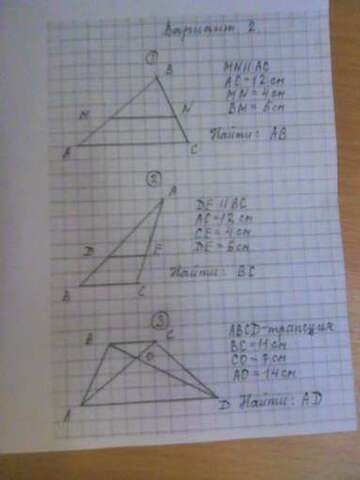 Вариант 2
①
B
M
N
A
C
MN || AC
AC = 12 см
MN = 4 см
BM = 6 см
Найти: AB
②
A
D
E
B
C
DE || BC
AC = 12 см
CE = 4 см
DE = 6 см
Найти: BC
③
B
C
O
A
D
ABCD - трапеция
BC = 11 см
CO = 7 см
AO = 14 см
Найти: AD